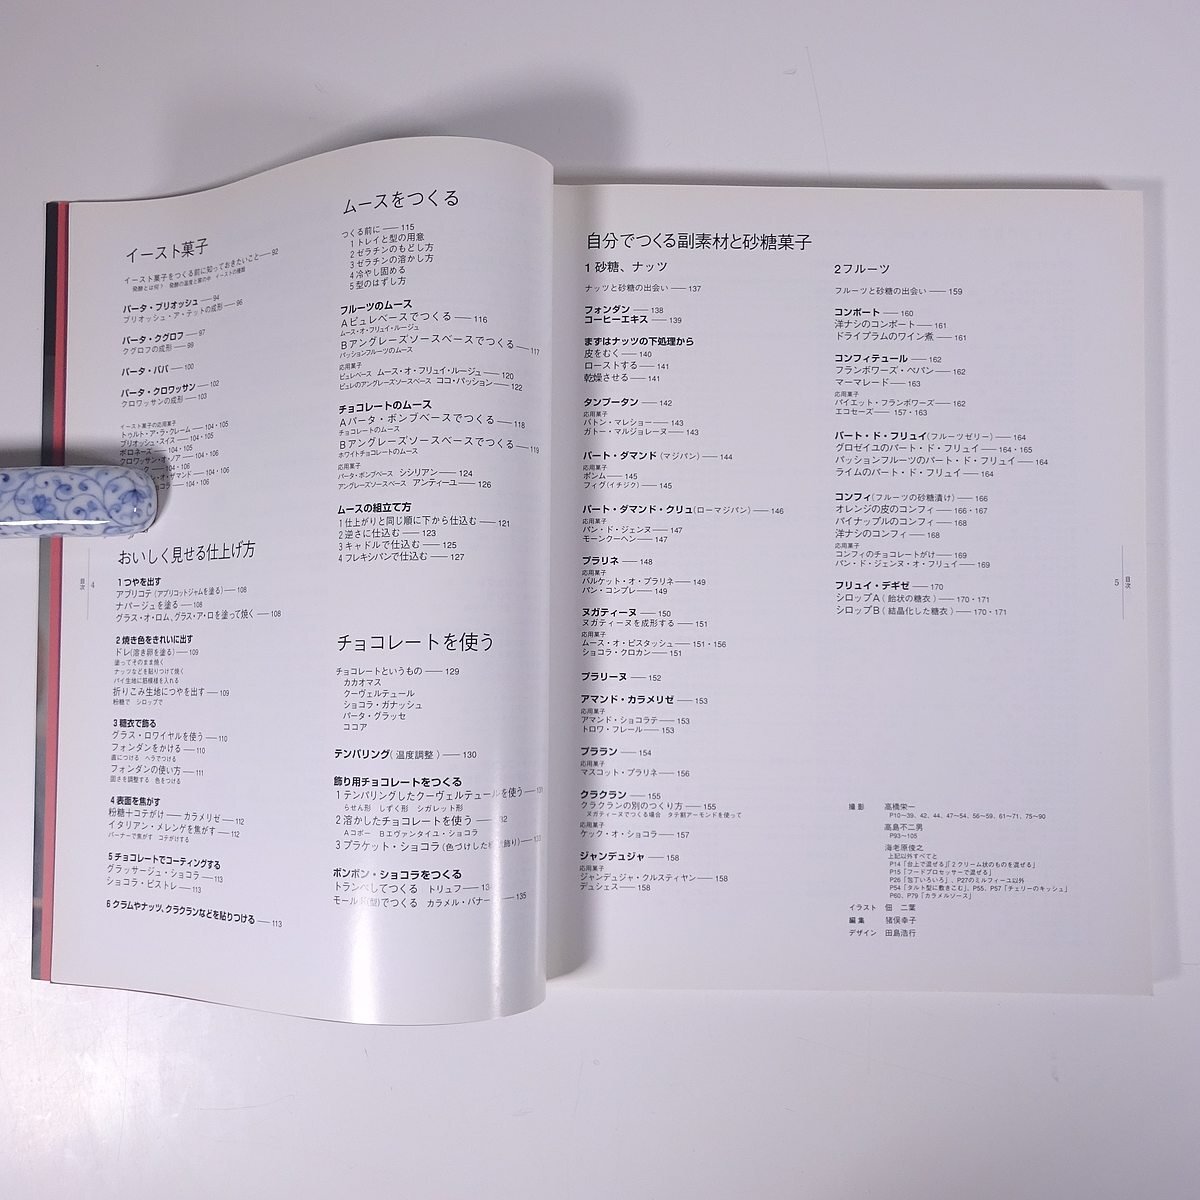 イースト菓子
イースト菓子をつくる前に知っておきたいこと——92
発酵とは何? 発酵の温度と窯の中 イーストの種類
パータ・ブリオッシュ——94
ブリオッシュ・ア・テットの成形——96
パータ・ククロフ——97
ククロフの成形——99
パータ・ババ——100
パータ・クロワッサン——102
クロワッサンの成形——103
イースト菓子の応用菓子
トゥルト・ア・ラ・クレーム——104・105
ブリオッシュ・スイス——104・105
ポロネーズ——104・105
クロワッサン・オ・ノア——104・106
——104・106
・オ・ザマンド——104・106
コラ——104・106
おいしく見せる仕上げ方
1 つやを出す
アプリコテ(アプリコットジャムを塗る)——108
ナパージュを塗る——108
グラス・オ・ロム、グラス・ア・ロを塗って焼く——108
2 焼き色をきれいに出す
ドレ(溶き卵を塗る)——109
塗ってそのまま焼く
ナッツなどを貼りつけて焼く
パイ生地に筋模様を入れる
折りこみ生地につやを出す——109
粉糖で シロップで
3 糖衣で飾る
グラス・ロワイヤルを使う——110
フォンダンをかける——110
直につける ヘラでつける
フォンダンの使い方——111
固さを調整する 色をつける
4 表面を焦がす
粉糖+コテがけ——カラメリゼ——112
イタリアン・メレンゲを焦がす——112
バーナーで焦がす コテがけする
5 チョコレートでコーティングする
グラッサージュ・ショコラ——113
ショコラ・ピストレ——113
6 クラムやナッツ、クラクランなどを貼りつける——113
目次
4
ムースをつくる
つくる前に——115
1 トレイと型の用意
2 ゼラチンのもどし方
3 ゼラチンの溶かし方
4 冷やし固める
5 型のはずし方
フルーツのムース
A ピュレベースでつくる——116
ムース・オ・フリュイ・ルージュ
B アングレーズソースベースでつくる——117
パッションフルーツのムース
応用菓子
ピュレベース ムース・オ・フリュイ・ルージュ——120
ピュレのアングレーズソースベース ココ・パッション——122
チョコレートのムース
A パータ・ボンブベースでつくる——118
チョコレートのムース
B アングレーズソースベースでつくる——119
ホワイトチョコレートのムース
応用菓子
パータ・ボンブベース シシリアン——124
アングレーズソースベース アンティーユ——126
ムースの組立て方
1 仕上がりと同じ順に下から仕込む——121
2 逆さに仕込む——123
3 キャドルで仕込む——125
4 フレキシパンで仕込む——127
チョコレートを使う
チョコレートというもの——129
カカオマス
クーヴェルテュール
ショコラ・ガナッシュ
パータ・グラッセ
ココア
テンパリング(温度調整)——130
飾り用チョコレートをつくる
1 テンパリングしたクーヴェルテュールを使う——131
らせん形 しずく形 シガレット形
2 溶かしたチョコレートを使う——132
A コポー B エヴァンタイユ・ショコラ
3 プラケット・ショコラ(色づけした 飾り)——133
ボンボン・ショコラをつくる
トランペしてつくる トリュフ——134
モールド(型)でつくる カラメル・バナー——135
自分でつくる副素材と砂糖菓子
1 砂糖、ナッツ
ナッツと砂糖の出会い——137
フォンダン——138
コーヒーエキス——139
まずはナッツの下処理から
皮をむく——140
ローストする——141
乾燥させる——141
タンプータン——142
応用菓子
バトン・マレショー——143
ガトー・マルジョレーヌ——143
パート・ダマンド(マジパン)——144
応用菓子
ポンム——145
フィグ(イチジク)——145
パート・ダマンド・クリュ(ローマジパン)——146
応用菓子
パン・ド・ジェンヌ——147
モーンクーヘン——147
プラリネ——148
応用菓子
パルケット・オ・プラリネ——149
パン・コンプレ——149
ヌガティーヌ——150
ヌガティーヌを成形する——151
応用菓子
ムース・オ・ピスタッシュ——151・156
ショコラ・クロカン——151
プラリーヌ——152
アマンド・カラメリゼ——153
応用菓子
アマンド・ショコラテ——153
トロワ・フレール——153
プララン——154
応用菓子
マスコット・プラリネ——156
クラクラン——155
クラクランの別のつくり方——155
ヌガティーヌでつくる場合 タテ割アーモンドを使って
応用菓子
ケック・オ・ショコラ——157
ジャンデュジャ——158
応用菓子
ジャンデュジャ・クルスティヤン——158
デュシェス——158
2 フルーツ
フルーツと砂糖の出会い——159
コンポート——160
洋ナシのコンポート——161
ドライプラムのワイン煮——161
コンフィテュール——162
フランボワーズ・ペパン——162
マーマレード——163
応用菓子
パイエット・フランボワーズ——162
エコセーズ——157・163
パート・ド・フリュイ(フルーツゼリー)——164
グロゼイユのパート・ド・フリュイ——164・165
パッションフルーツのパート・ド・フリュイ——164
ライムのパート・ド・フリュイ——164
コンフィ(フルーツの砂糖漬け)——166
オレンジの皮のコンフィ——166・167
パイナップルのコンフィ——168
洋ナシのコンフィ——168
応用菓子
コンフィのチョコレートがけ——169
パン・ド・ジェンヌ・オ・フリュイ——169
フリュイ・デギゼ——170
シロップA(飴状の糖衣)——170・171
シロップB(結晶化した糖衣)——170・171
5
目次
撮影 高橋栄一
P10〜39、42、44、47〜54、56〜59、61〜71、75〜90
高島不二男
P93〜105
海老原俊之
上記以外すべてと
P14「台上で混ぜる」「2 クリーム状のものを混ぜる」
P15「フードプロセッサーで混ぜる」
P26「包丁いろいろ」、P27のミルフィーユ以外
P54「タルト型に敷きこむ」、P55、P57「チェリーのキッシュ」
P60、P79「カラメルソース」
イラスト 佃 二葉
編集 猪俣幸子
デザイン 田島浩行